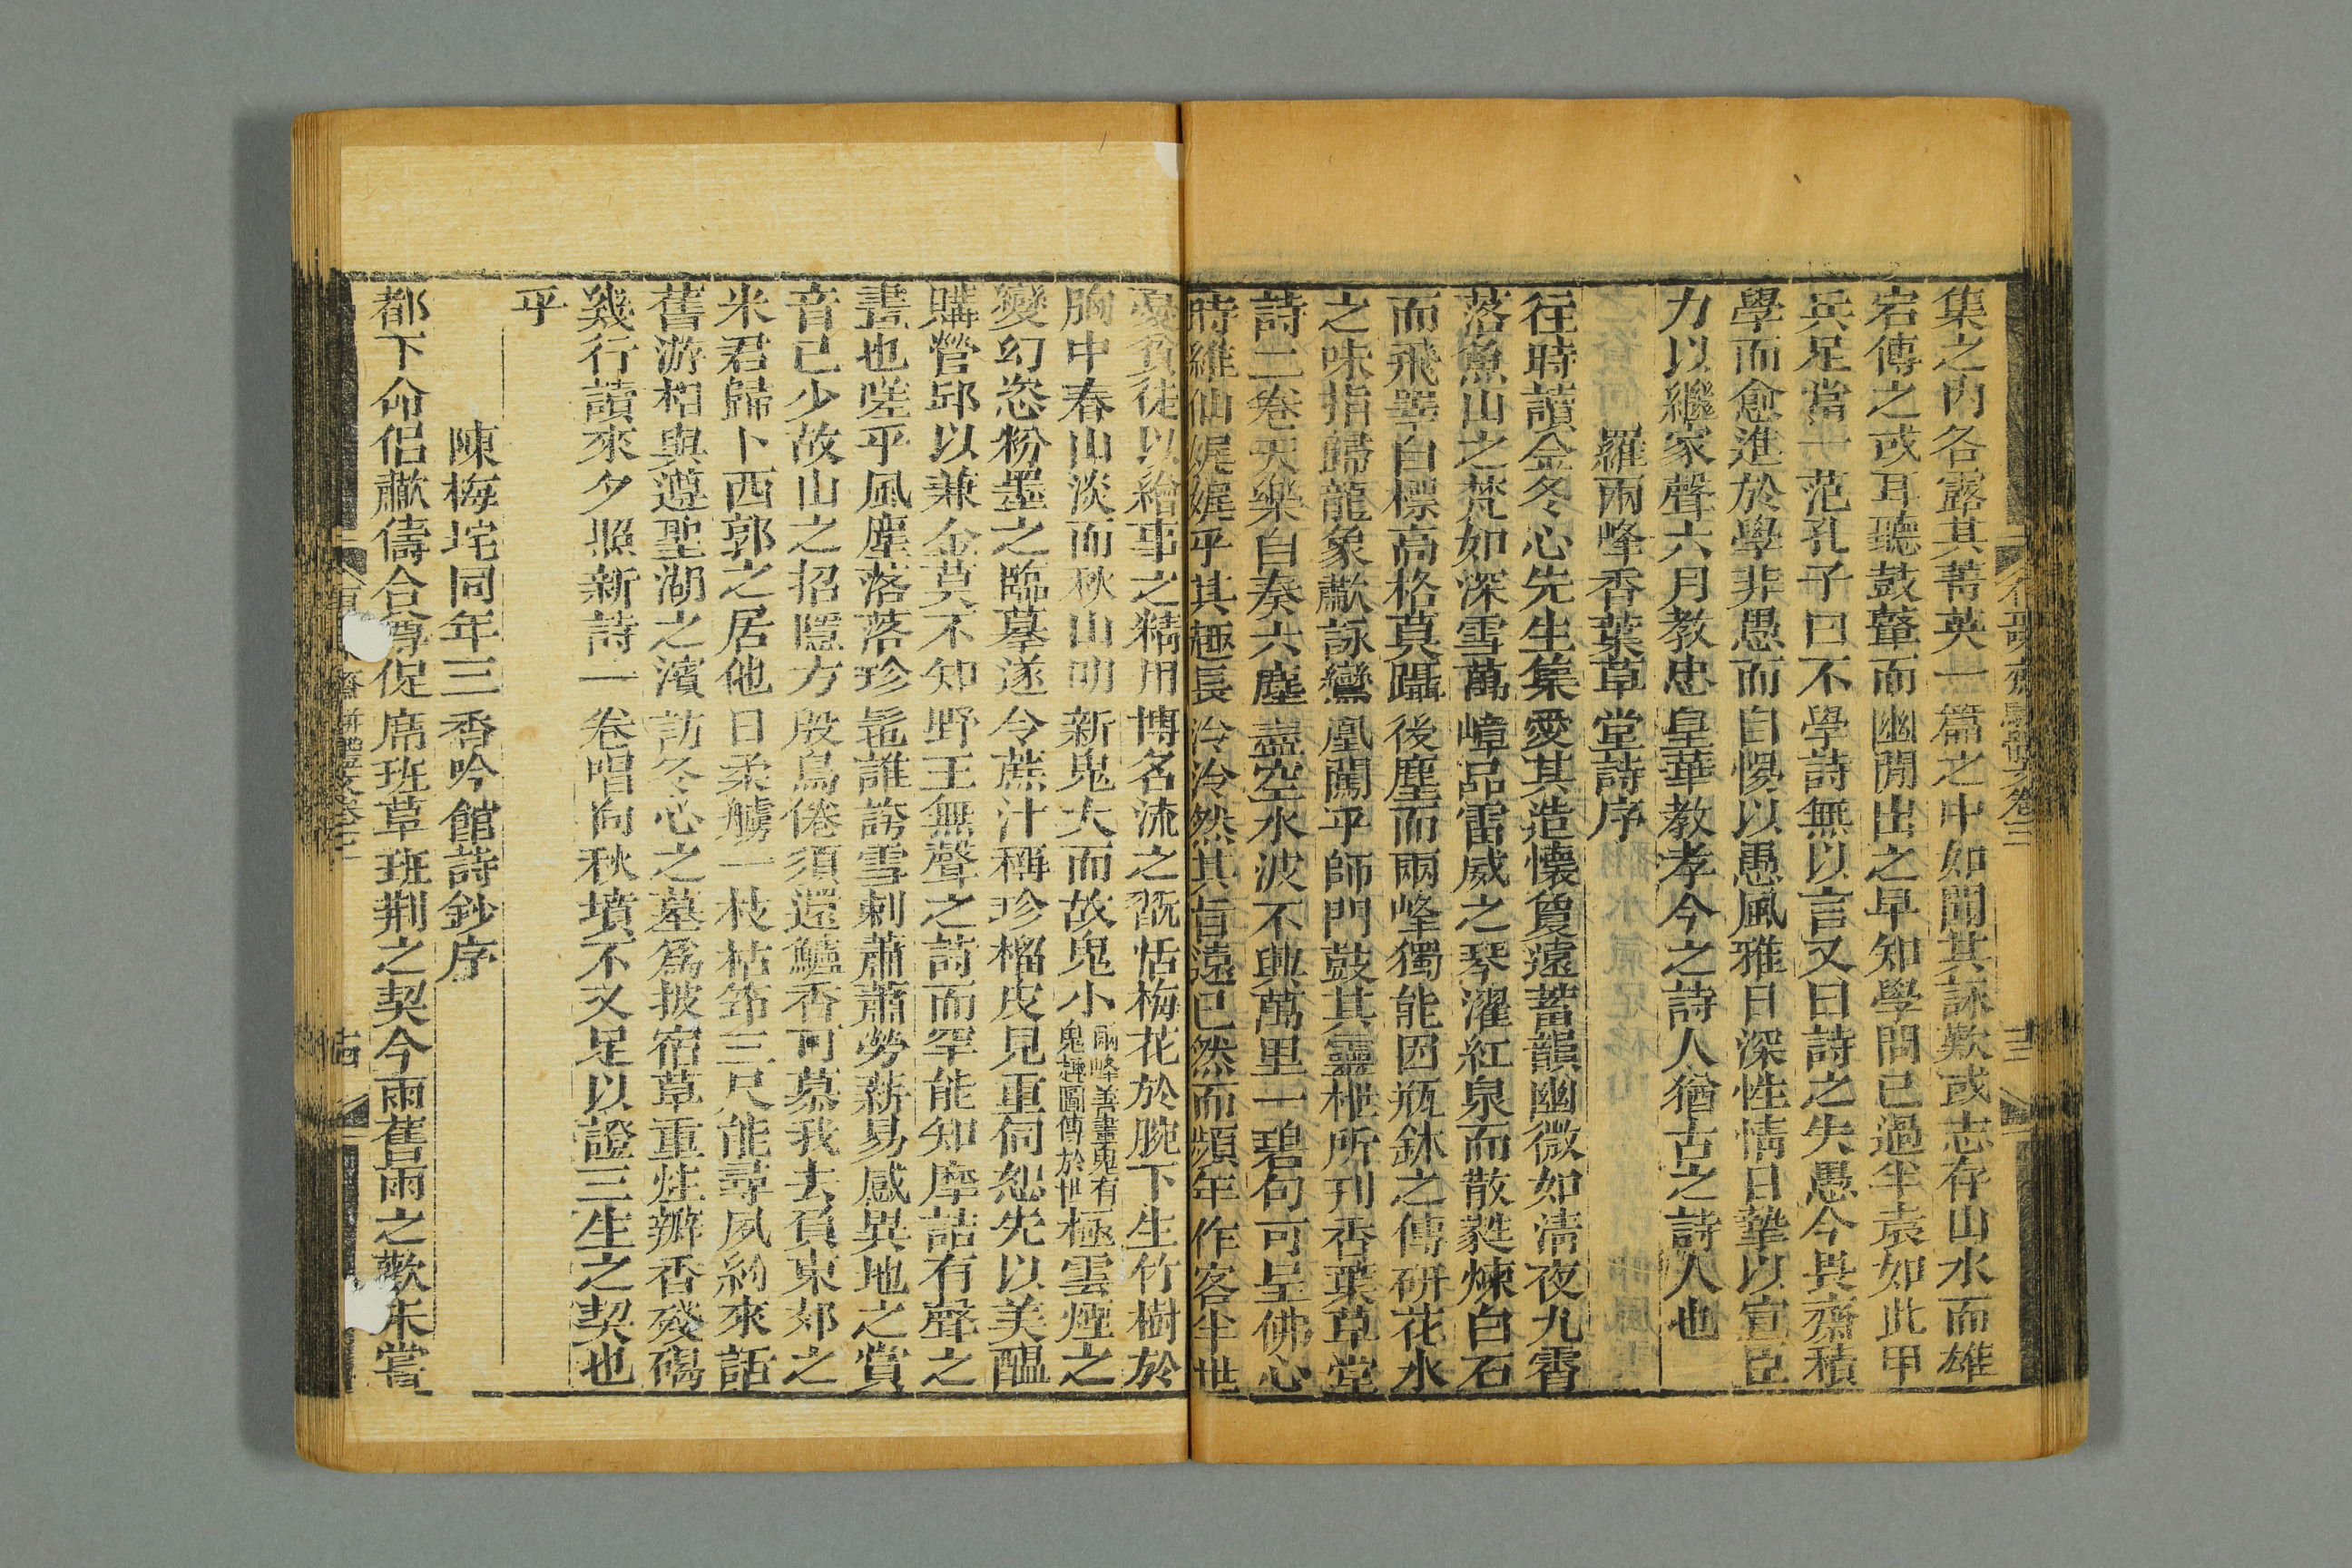 集之內各露其菁英一篇之中如聞其詠歎或志存山水而雄
宕傳之或耳聽鼓鼙而幽閒出之早知學問已過半袁如此甲
兵足當 范孔子曰不學詩無以言又曰詩之失愚今畏齋積
學而愈進於學非愚而自惕以愚風雅日深性情日摯以宣臣
力以繼家聲六月教忠皇華教孝今之詩人猶古之詩人也
羅兩峰香葉草堂詩序
往時讀金冬心先生集愛其造懷夐遠蓄韻幽微如清夜九霄
落魚山之梵如深雪萬嶂品雷威之琴濯紅泉而散蕤煉白石
而飛 自標高格莫躡後塵而兩峰獨能因瓶鉢之傳研花水
之味指歸龍象獻詠鸞凰闖乎師門鼓其靈枻所刊香葉草堂
詩二卷天樂自奏六塵盡空水波不興萬里一碧句可呈佛心
時維仙娓娓乎其趣長泠泠然其旨遠已然而頻年作客半世
憂貧徒以繪事之精用博名流之翫恬梅花於腕下生竹樹於
胸中春山淡而秋山明新鬼大而故鬼小兩峰善畫鬼有鬼趣圖傳於世極雲煙之
變幻恣粉墨之臨摹遂令蔗汁稱珍榴皮見重伺恕先以美醞
購營邱以兼金莫不知野王無聲之詩而罕能知摩詰有聲之
畫也嗟乎風塵落落珍髢誰誇雪刺蕭蕭勞薪易感異地之賞
音已少故山之招隱方殷鳥倦須還鱸香可慕我去負東郊之
米君歸卜西郭之居他日柔艣一枝枯筇三尺能尋夙約來話
舊游相與遵聖湖之濱訪冬心之墓爲披宿草重炷瓣香殘碣
幾行讀來夕照新詩一卷唱向秋墳不又足以證三生之契也
乎
陳梅垞同年三香吟館詩鈔序
都下命侣獻儔合尊促席班草班荆之契今雨舊雨之歡未嘗